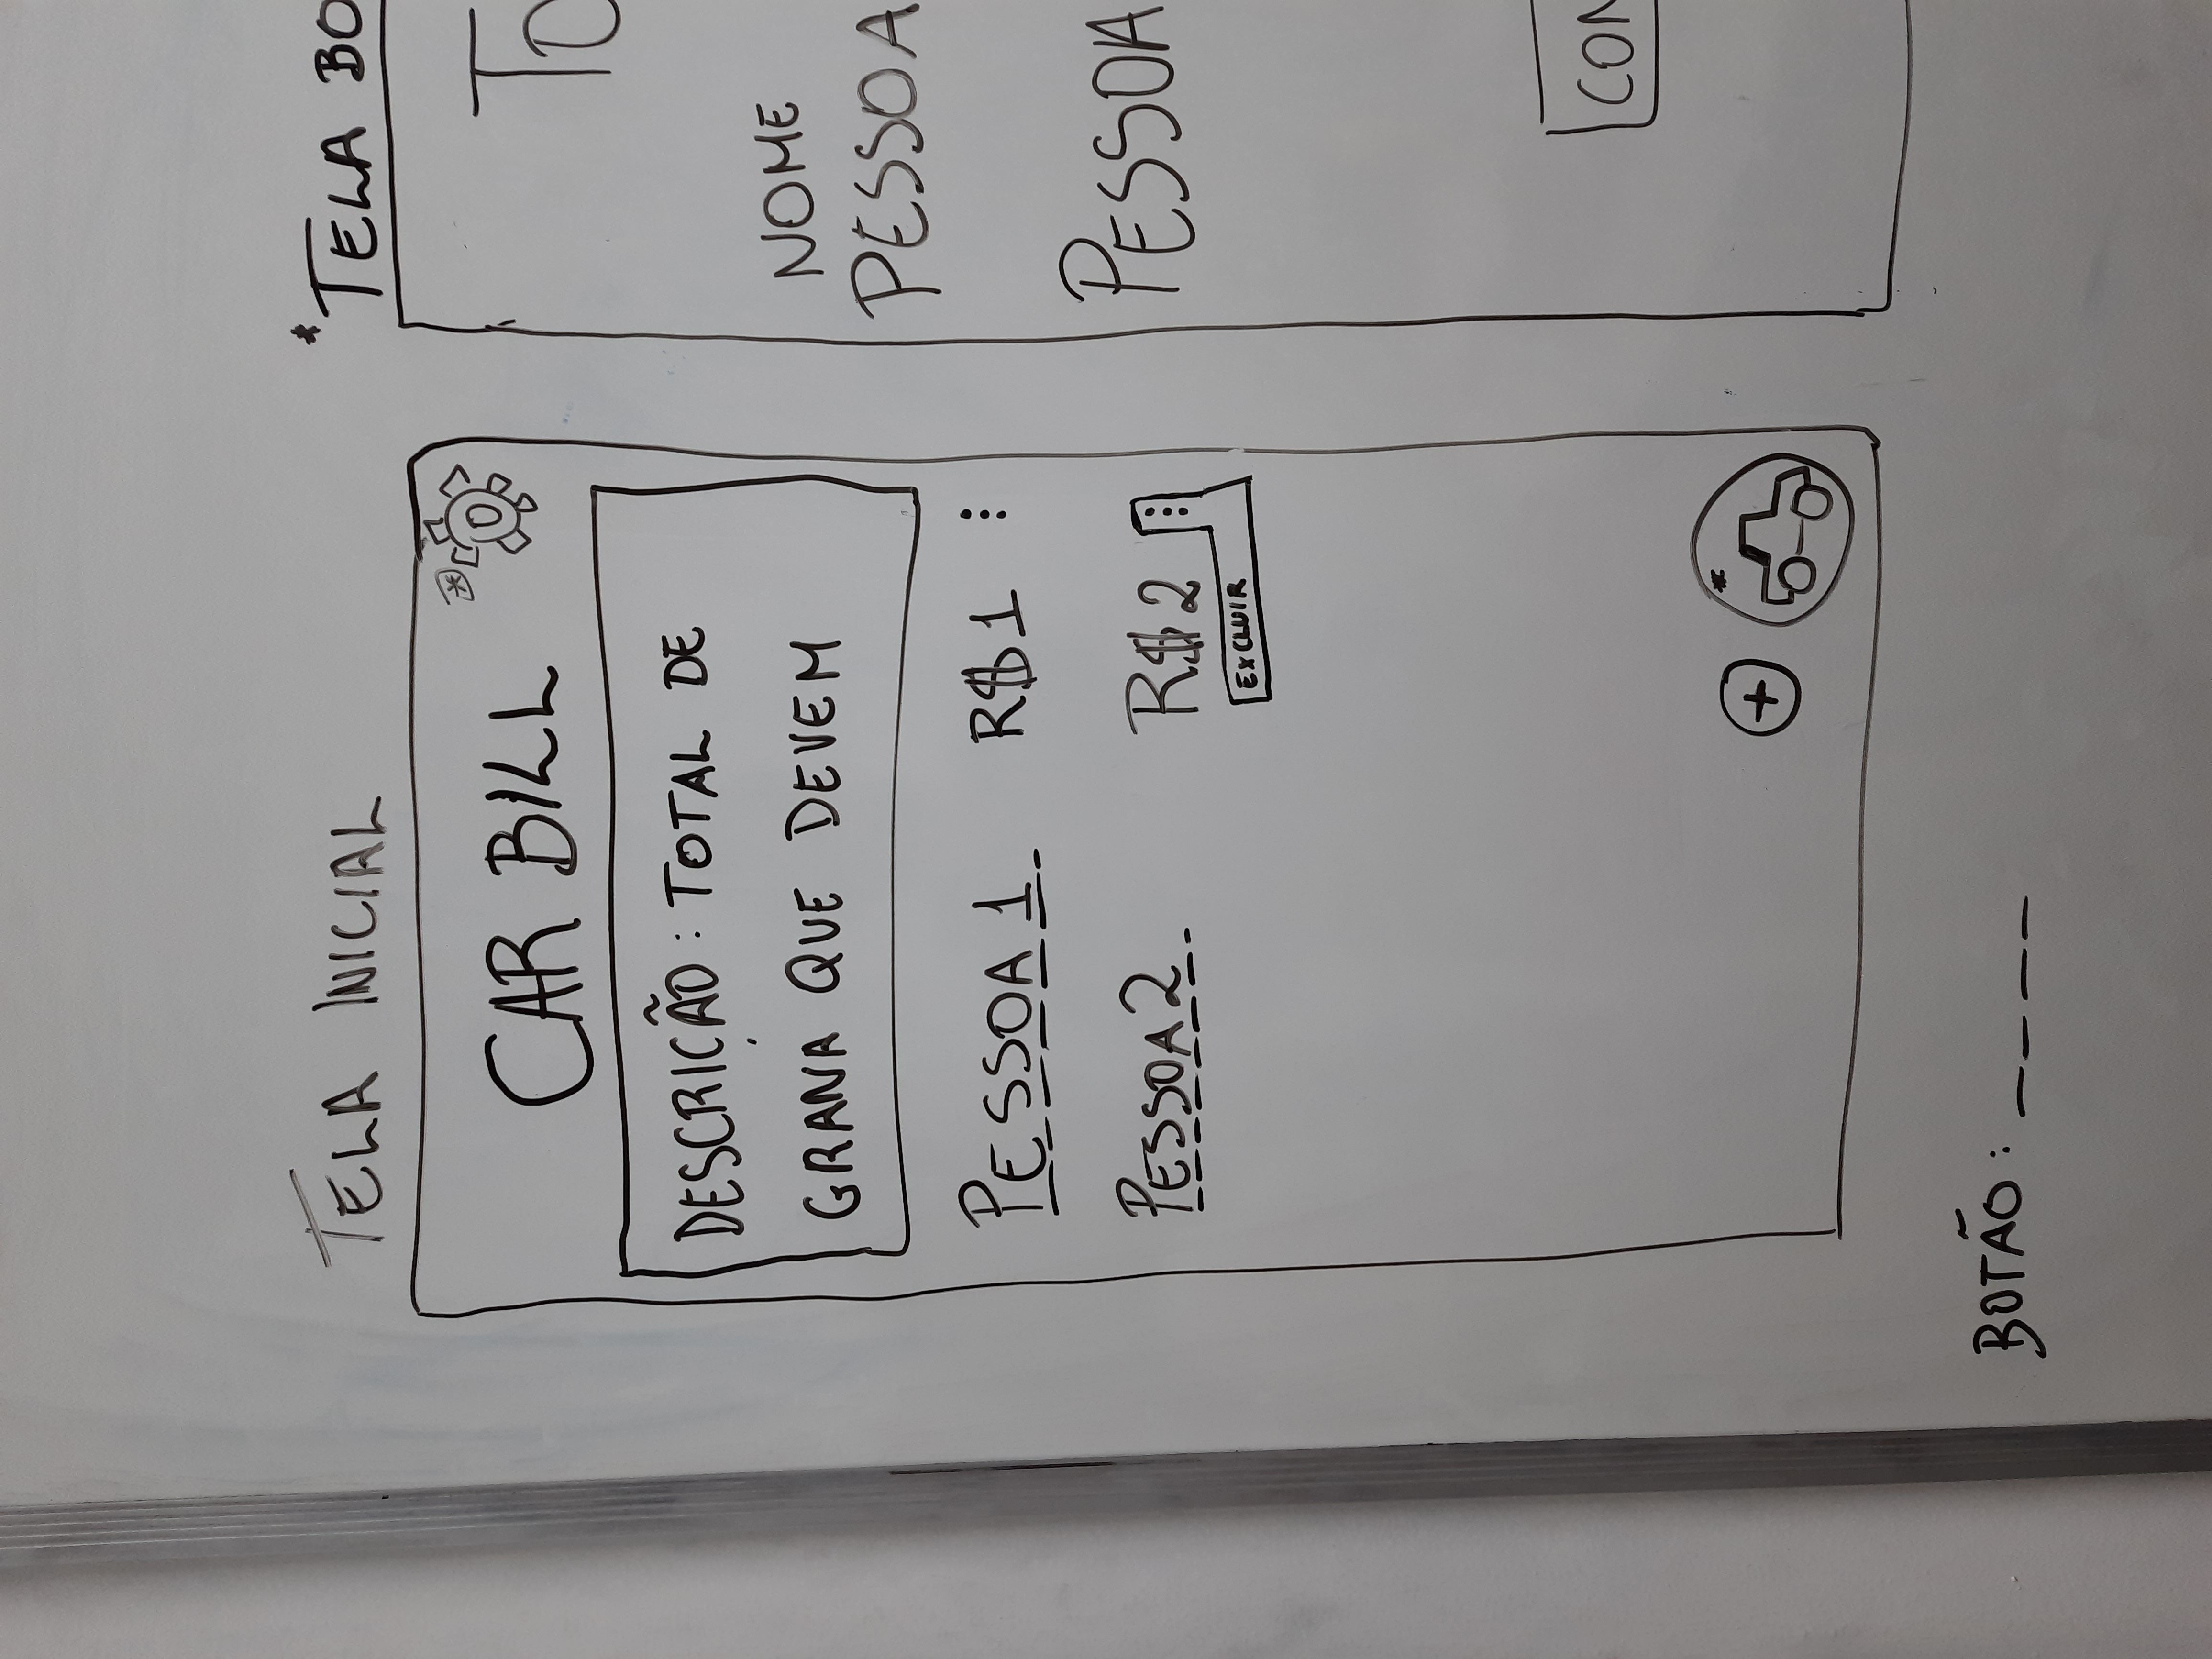 TELA INICIAL
CAR BILL
DESCRIÇÃO: TOTAL DE
GRANA QUE DEVEM
PESSOA 1 R$1
PESSOA 2 R$2
EXCLUIR
+
BOTÃO: ____
*TELA BO
TO
NOME
PESSOA
PESSOA
CON